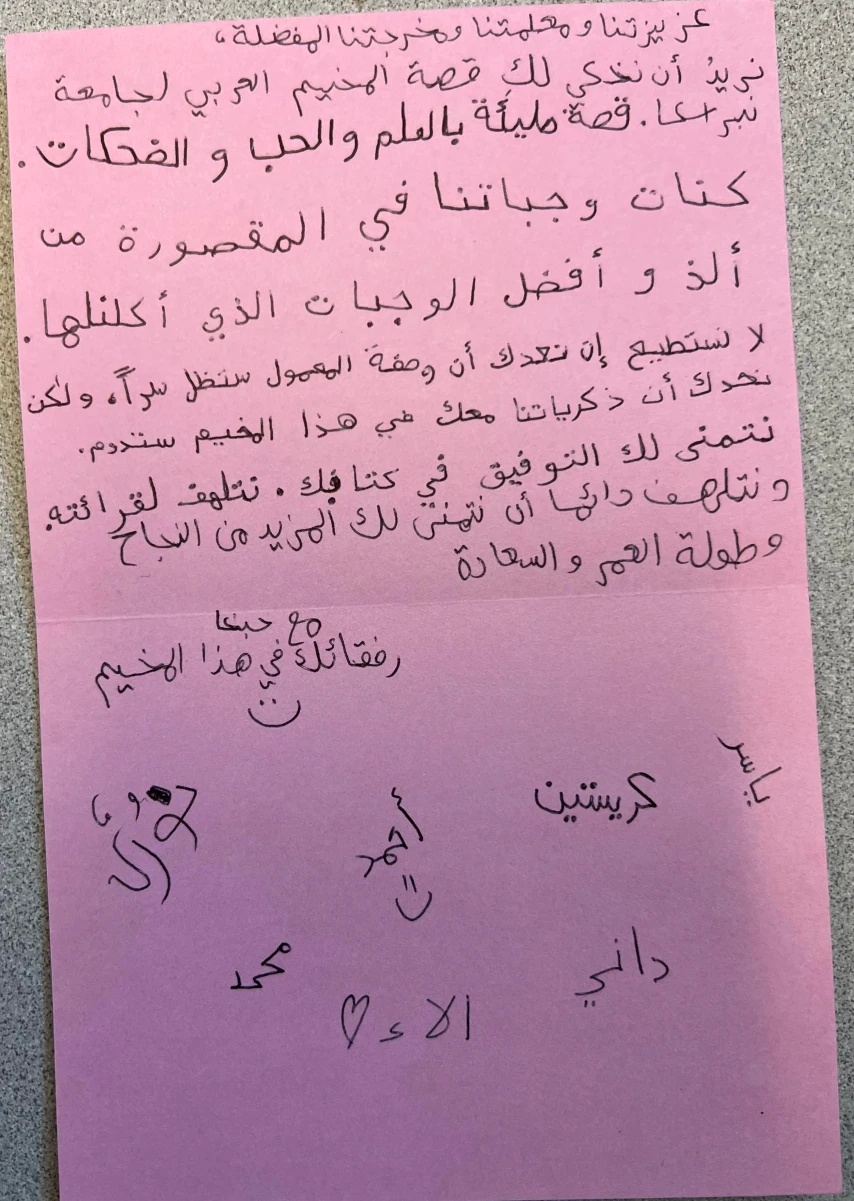 عزيزتنا ومعلمتنا ومخرجتنا المفضلة،
نريدُ أن نحكي لكِ قصة المخيم العربي لجامعة
نبراسكا. قصة مليئة بالعلم والحب و الضحكات.
كنات وجباتنا في المقصورة من
ألذ و أفضل الوجبات الذي أكلنلها.
لا نستطيع إن نعدك أن وصفة المعمول ستظل سراً، ولكن
نعدك أن ذكرياتنا معك في هذا المخيم ستدوم.
نتمنى لك التوفيق في كتابك. نتلهف لقرائته.
ونتلهف دائما أن نتمنى لك المزيد من النجاح
وطولة العمر والسعادة
مع حبنا
رفقائك في هذا المخيم
ياسر
كريستين
أحمد
داني
محمد
الاء